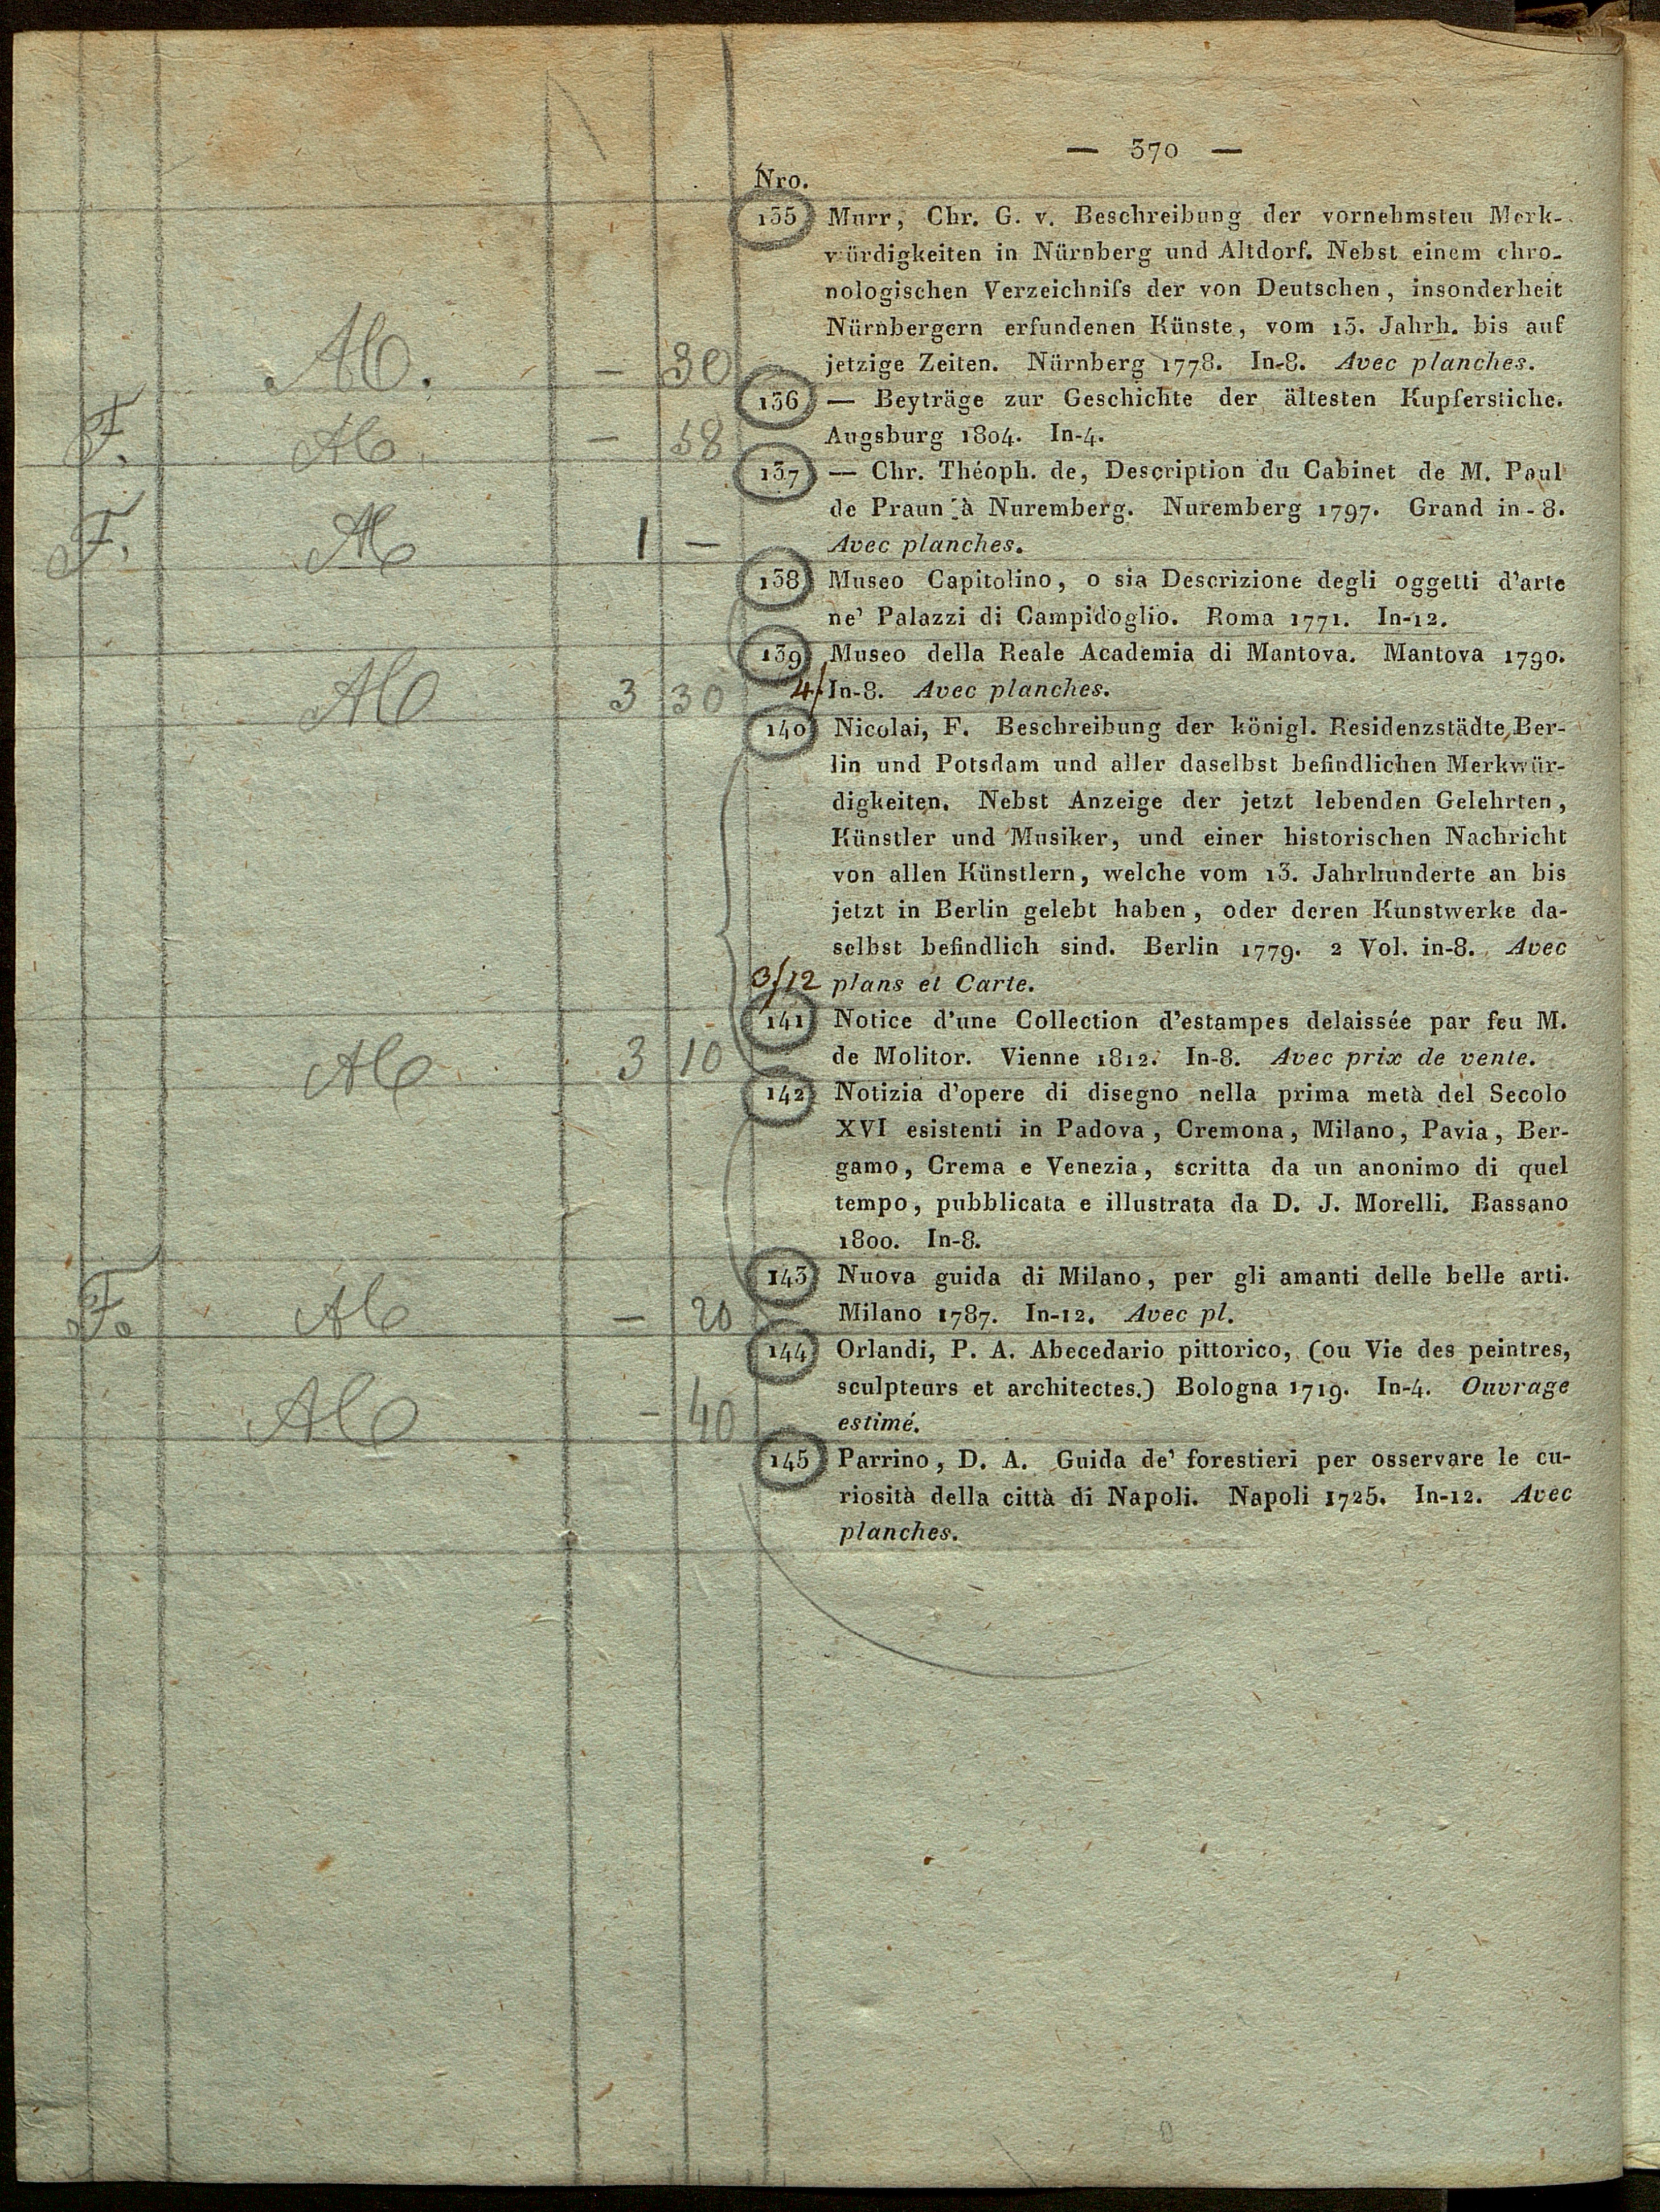 — 370 —
Nro.
135 Murr, Chr. G. v. Beschreibung der vornehmsten Merk-
würdigkeiten in Nürnberg und Altdorf. Nebst einem chro-
nologischen Verzeichniſs der von Deutschen, insonderheit
Nürnbergern erfundenen Künste, vom 13. Jahrh. bis auf
jetzige Zeiten. Nürnberg 1778. In-8. Avec planches.
— 30
136 — Beyträge zur Geschichte der ältesten Kupferstiche.
Augsburg 1804. In-4.
F. — 58
137 — Chr. Théoph. de, Description du Cabinet de M. Paul
de Praun à Nuremberg. Nuremberg 1797. Grand in-8.
Avec planches.
F. 1 —
138 Museo Capitolino, o sia Descrizione degli oggetti d'arte
ne' Palazzi di Campidoglio. Roma 1771. In-12.
139 Museo della Reale Academia di Mantova. Mantova 1790.
In-8. Avec planches.
3 30 4/
140 Nicolai, F. Beschreibung der königl. Residenzstädte Ber-
lin und Potsdam und aller daselbst befindlichen Merkwür-
digkeiten. Nebst Anzeige der jetzt lebenden Gelehrten,
Künstler und Musiker, und einer historischen Nachricht
von allen Künstlern, welche vom 13. Jahrhunderte an bis
jetzt in Berlin gelebt haben, oder deren Kunstwerke da-
selbst befindlich sind. Berlin 1779. 2 Vol. in-8. Avec
3/12 plans et Carte.
141 Notice d'une Collection d'estampes delaissée par feu M.
de Molitor. Vienne 1812. In-8. Avec prix de vente.
3 10
142 Notizia d'opere di disegno nella prima metà del Secolo
XVI esistenti in Padova, Cremona, Milano, Pavia, Ber-
gamo, Crema e Venezia, scritta da un anonimo di quel
tempo, pubblicata e illustrata da D. J. Morelli. Bassano
1800. In-8.
143 Nuova guida di Milano, per gli amanti delle belle arti.
Milano 1787. In-12. Avec pl.
F. — 20
144 Orlandi, P. A. Abecedario pittorico, (ou Vie des peintres,
sculpteurs et architectes.) Bologna 1719. In-4. Ouvrage
estimé.
— 40
145 Parrino, D. A. Guida de' forestieri per osservare le cu-
riosità della città di Napoli. Napoli 1725. In-12. Avec
planches.